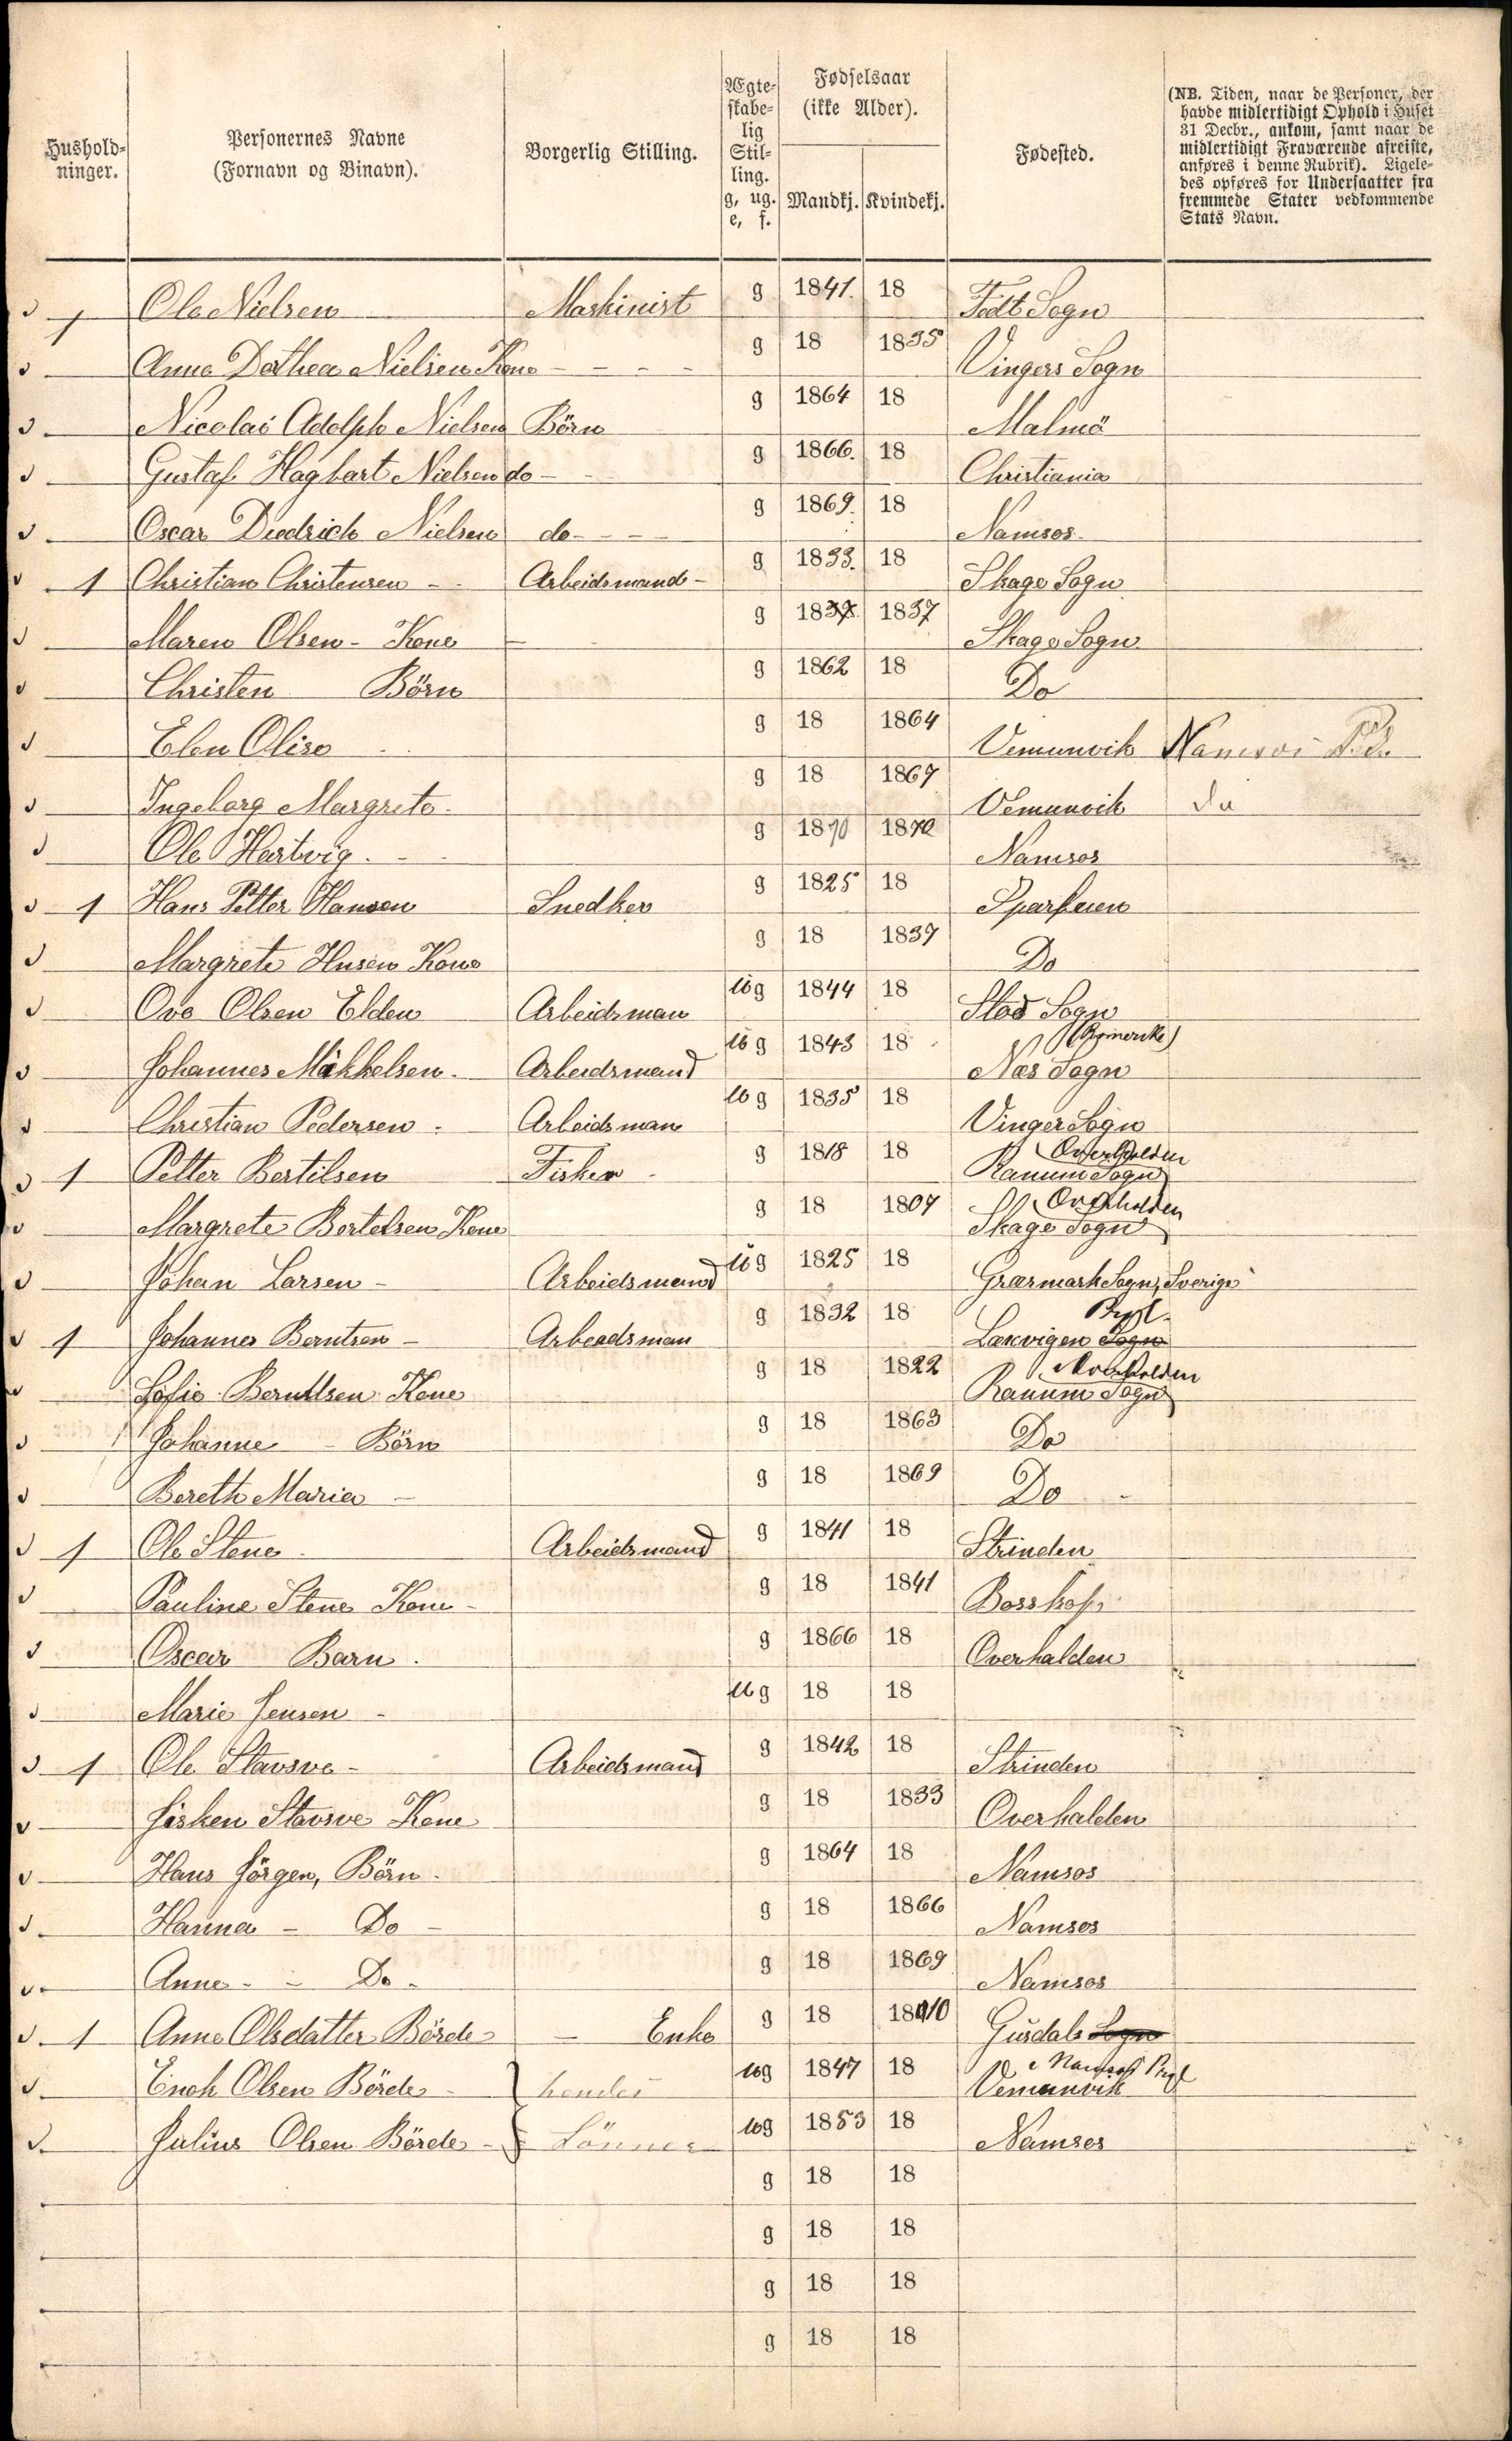 Hushold-
ninger.
Personernes Navne
(Fornavn og Binavn).
Borgerlig Stilling.
Ægte-
skabe-
lig
Stil-
ling.
g, ug.
e, f.
Fødselsaar
(ikke Alder).
Mandkj. Kvindekj.
Fødested.
(NB. Tiden, naar de Personer, der
havde midlertidigt Ophold i Huset
31 Decbr., ankom, samt naar de
midlertidigt Fraværende afreiste,
anføres i denne Rubrik). Ligele-
des opføres for Undersaatter fra
fremmede Stater vedkommende
Stats Navn.
1 Ole Nielsen Maskinist g 1841. 18 Sogn
Anne Dorthea Nielsen Kone g 18 1835 Vingers Sogn
Nicolai Adolph Nielsen Börn g 1864 18 Malmö
Gustaf Hagbart Nielsen do g 1866. 18 Christiania
Oscar Diedrich Nielsen do g 1869. 18 Namsos
1 Christian Christensen Arbeidsmand g 1833. 18 Skage Sogn
Maren Olsen - Kone g 1837 1837 Skage Sogn
Christen Börn g 1862 18 Do
Elen Olise g 18 1864 Vemunvik Namsos
Ingeborg Margrete g 18 1867 Vemunvik do
Ole Hartvig g 1870 1870 Namsos
1 Hans Petter Hansen Snedker g 1825 18 Sparbuen
Margrete Hnsen Kone g 18 1837 Do
Ove Olsen Elden Arbeidsman ug 1844 18 Stod Sogn
(Romerike)
Johannes Mikkelsen Arbeidsmand ug 1843 18 Næs Sogn
Christian Pedersen Arbeidsman ug 1835 18 Vinger Sogn
Overhalden
1 Petter Bertilsen Fisker g 1818 18 Ranum Sogn
Overhalden
Margrete Bertelsen Kone g 18 1807 Skage Sogn
Johan Larsen Arbeidsmand ug 1825 18 Græsmark Sogn, Sverige
Prgl.
1 Johannes Berntsen Arbeadsman g 1832 18 Lexvigen Sogn
Overhalden
Sofie Berntlsen Kone g 18 1822 Ranum Sogn
Johanne Börn g 18 1863 Do
Bereth Maria g 18 1869 Do
1 Ole Stene Arbeidsmand g 1841 18 Strinden
Pauline Stene Kone g 18 1841 Bosskop
Oscar Barn g 1866 18 Overhalden
Marie Jensen ug 18 18
1 Ole Stavsve Arbeidsmand g 1842 18 Strinden
Fisken Stavsve Kone g 18 1833 Overhalden
Hans Jörgen, Börn g 1864 18 Namsos
Hanna Do g 18 1866 Namsos
Anne Do g 18 1869 Namsos
1 Anne Olsdatter Börde Enke g 18 1810 Gusdals Sogn
Namsos Prgl
Enok Olsen Börde } hendes ug 1847 18 Vemunvik
Julius Olsen Börde } Sönner ug 1853 18 Namsos
g 18 18
g 18 18
g 18 18
g 18 18